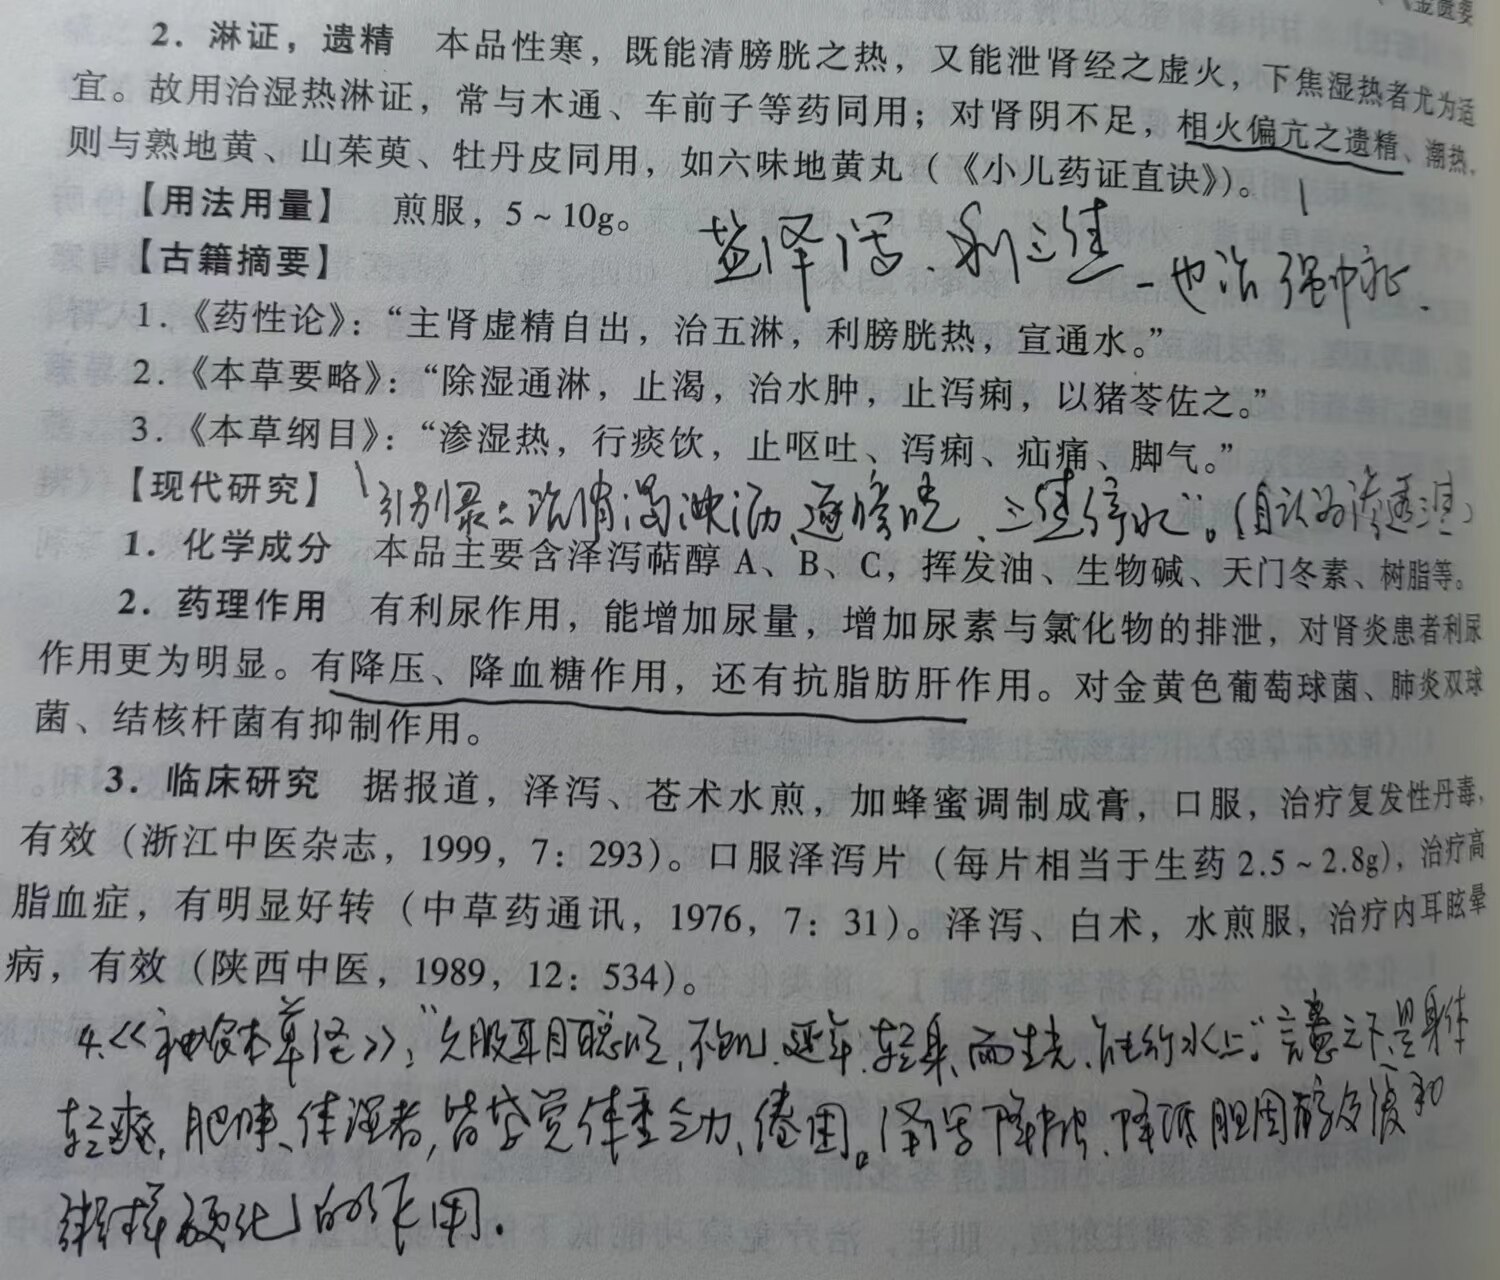 《金匮要
2．淋证，遗精　本品性寒，既能清膀胱之热，又能泄肾经之虚火，下焦湿热者尤为适
宜。故用治湿热淋证，常与木通、车前子等药同用；对肾阴不足，相火偏亢之遗精、潮热，
则与熟地黄、山茱萸、牡丹皮同用，如六味地黄丸（《小儿药证直诀》）。
【用法用量】　煎服，5～10g。
盐泽泻、利三焦
－也治强中证.
【古籍摘要】
1．《药性论》：“主肾虚精自出，治五淋，利膀胱热，宣通水。”
2．《本草要略》：“除湿通淋，止渴，治水肿，止泻痢，以猪苓佐之。”
3．《本草纲目》：“渗湿热，行痰饮，止呕吐、泻痢、疝痛、脚气。”
【现代研究】
引别录：治消渴淋沥、逐膀胱、三焦停水”。(自认为渗透三焦)
1．化学成分　本品主要含泽泻萜醇 A、B、C，挥发油、生物碱、天门冬素、树脂等。
2．药理作用　有利尿作用，能增加尿量，增加尿素与氯化物的排泄，对肾炎患者利尿
作用更为明显。有降压、降血糖作用，还有抗脂肪肝作用。对金黄色葡萄球菌、肺炎双球
菌、结核杆菌有抑制作用。
3．临床研究　据报道，泽泻、苍术水煎，加蜂蜜调制成膏，口服，治疗复发性丹毒，
有效（浙江中医杂志，1999，7：293）。口服泽泻片（每片相当于生药 2.5～2.8g），治疗高
脂血症，有明显好转（中草药通讯，1976，7：31）。泽泻、白术，水煎服，治疗内耳眩晕
病，有效（陕西中医，1989，12：534）。
4.《神农本草经》：“久服耳目聪明，不饥、延年、轻身，面生光、能行水上”言意之下是身体
轻爽，肥胖、体湿者，皆常觉体重乏力、倦困。泽泻降脂、降低胆固醇及缓和
粥样硬化的作用.